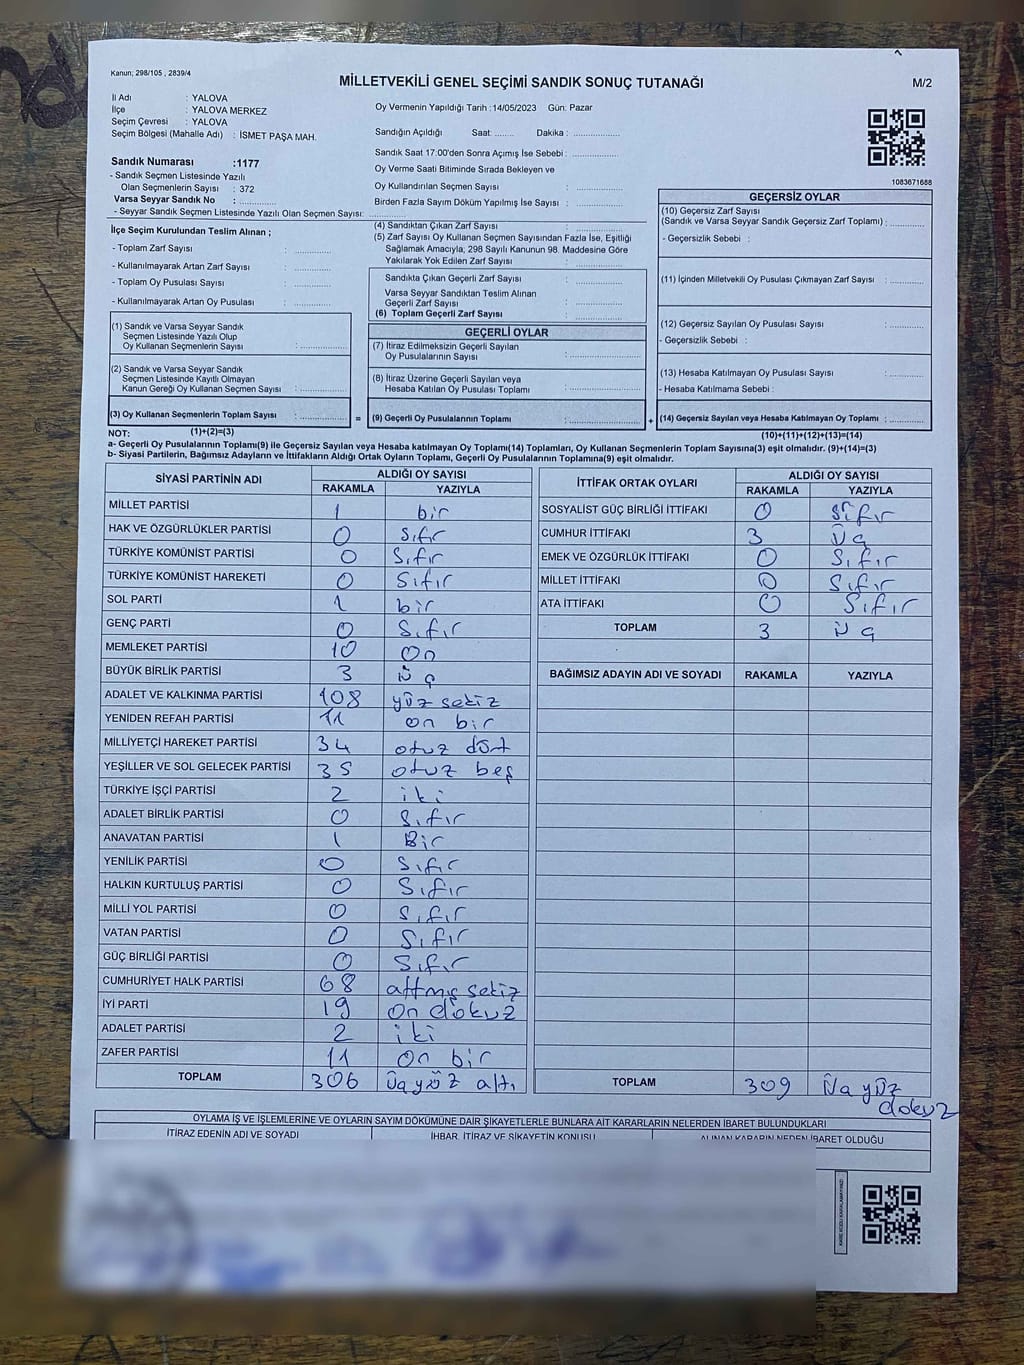 Kanun; 298/105 , 2839/4
MİLLETVEKİLİ GENEL SEÇİMİ SANDIK SONUÇ TUTANAĞI
M/2
İl Adı : YALOVA
İlçe : YALOVA MERKEZ
Seçim Çevresi : YALOVA
Seçim Bölgesi (Mahalle Adı) : İSMET PAŞA MAH.
Oy Vermenin Yapıldığı Tarih :14/05/2023 Gün: Pazar
Sandığın Açıldığı Saat: ....... Dakika : ..................
Sandık Saat 17:00'den Sonra Açımış İse Sebebi : ..................
Oy Verme Saati Bitiminde Sırada Bekleyen ve
Oy Kullandırılan Seçmen Sayısı : ..................
Birden Fazla Sayım Döküm Yapılmış İse Sayısı : ..................
1083671688
Sandık Numarası :1177
- Sandık Seçmen Listesinde Yazılı
Olan Seçmenlerin Sayısı : 372
Varsa Seyyar Sandık No : ..............
- Seyyar Sandık Seçmen Listesinde Yazılı Olan Seçmen Sayısı: ..............
İlçe Seçim Kurulundan Teslim Alınan ;
- Toplam Zarf Sayısı : ..............
- Kullanılmayarak Artan Zarf Sayısı : ..............
- Toplam Oy Pusulası Sayısı : ..............
- Kullanılmayarak Artan Oy Pusulası : ..............
(1) Sandık ve Varsa Seyyar Sandık
Seçmen Listesinde Yazılı Olup
Oy Kullanan Seçmenlerin Sayısı : ..............
(2) Sandık ve Varsa Seyyar Sandık
Seçmen Listesinde Kayıtlı Olmayan
Kanun Gereği Oy Kullanan Seçmen Sayısı : ..............
(3) Oy Kullanan Seçmenlerin Toplam Sayısı : ..............
(1)+(2)=(3)
(4) Sandıktan Çıkan Zarf Sayısı : ..............
(5) Zarf Sayısı Oy Kullanan Seçmen Sayısından Fazla İse, Eşitliği
Sağlamak Amacıyla; 298 Sayılı Kanunun 98. Maddesine Göre
Yakılarak Yok Edilen Zarf Sayısı : ..............
Sandıkta Çıkan Geçerli Zarf Sayısı : ..............
Varsa Seyyar Sandıktan Teslim Alınan
Geçerli Zarf Sayısı : ..............
(6) Toplam Geçerli Zarf Sayısı : ..............
GEÇERLİ OYLAR
(7) İtiraz Edilmeksizin Geçerli Sayılan
Oy Pusulalarının Sayısı : ..............
(8) İtiraz Üzerine Geçerli Sayılan veya
Hesaba Katılan Oy Pusulası Toplamı : ..............
= (9) Geçerli Oy Pusulalarının Toplamı : .............. +
GEÇERSİZ OYLAR
(10) Geçersiz Zarf Sayısı
(Sandık ve Varsa Seyyar Sandık Geçersiz Zarf Toplamı) : ..............
- Geçersizlik Sebebi :
(11) İçinden Milletvekili Oy Pusulası Çıkmayan Zarf Sayısı : ..............
(12) Geçersiz Sayılan Oy Pusulası Sayısı : ..............
- Geçersizlik Sebebi :
(13) Hesaba Katılmayan Oy Pusulası Sayısı : ..............
- Hesaba Katılmama Sebebi :
(14) Geçersiz Sayılan veya Hesaba Katılmayan Oy Toplamı : ..............
(10)+(11)+(12)+(13)=(14)
NOT:
a- Geçerli Oy Pusulalarının Toplamı(9) ile Geçersiz Sayılan veya Hesaba katılmayan Oy Toplamı(14) Toplamları, Oy Kullanan Seçmenlerin Toplam Sayısına(3) eşit olmalıdır. (9)+(14)=(3)
b- Siyasi Partilerin, Bağımsız Adayların ve İttifakların Aldığı Ortak Oyların Toplamı, Geçerli Oy Pusulalarının Toplamına(9) eşit olmalıdır.
SİYASİ PARTİNİN ADI ALDIĞI OY SAYISI
RAKAMLA YAZIYLA
MİLLET PARTİSİ 1 bir
HAK VE ÖZGÜRLÜKLER PARTİSİ 0 Sıfır
TÜRKİYE KOMÜNİST PARTİSİ 0 Sıfır
TÜRKİYE KOMÜNİST HAREKETİ 0 Sıfır
SOL PARTİ 1 bir
GENÇ PARTİ 0 Sıfır
MEMLEKET PARTİSİ 10 On
BÜYÜK BİRLİK PARTİSİ 3 üç
ADALET VE KALKINMA PARTİSİ 108 yüz sekiz
YENİDEN REFAH PARTİSİ 11 on bir
MİLLİYETÇİ HAREKET PARTİSİ 34 otuz dört
YEŞİLLER VE SOL GELECEK PARTİSİ 35 otuz beş
TÜRKİYE İŞÇİ PARTİSİ 2 iki
ADALET BİRLİK PARTİSİ 0 Sıfır
ANAVATAN PARTİSİ 1 Bir
YENİLİK PARTİSİ 0 Sıfır
HALKIN KURTULUŞ PARTİSİ 0 Sıfır
MİLLİ YOL PARTİSİ 0 Sıfır
VATAN PARTİSİ 0 Sıfır
GÜÇ BİRLİĞİ PARTİSİ 0 Sıfır
CUMHURİYET HALK PARTİSİ 68 altmış sekiz
İYİ PARTİ 19 On dokuz
ADALET PARTİSİ 2 iki
ZAFER PARTİSİ 11 On bir
TOPLAM 306 Üçyüz altı
İTTİFAK ORTAK OYLARI ALDIĞI OY SAYISI
RAKAMLA YAZIYLA
SOSYALİST GÜÇ BİRLİĞİ İTTİFAKI 0 Sıfır
CUMHUR İTTİFAKI 3 Üç
EMEK VE ÖZGÜRLÜK İTTİFAKI 0 Sıfır
MİLLET İTTİFAKI 0 Sıfır
ATA İTTİFAKI 0 Sıfır
TOPLAM 3 Üç
BAĞIMSIZ ADAYIN ADI VE SOYADI RAKAMLA YAZIYLA
TOPLAM 309 Üçyüz
dokuz
OYLAMA İŞ VE İŞLEMLERİNE VE OYLARIN SAYIM DÖKÜMÜNE DAİR ŞİKAYETLERLE BUNLARA AİT KARARLARIN NELERDEN İBARET BULUNDUKLARI
İTİRAZ EDENİN ADI VE SOYADI İHBAR, İTİRAZ VE ŞİKAYETİN KONUSU ALINAN KARARIN NEDEN İBARET OLDUĞU